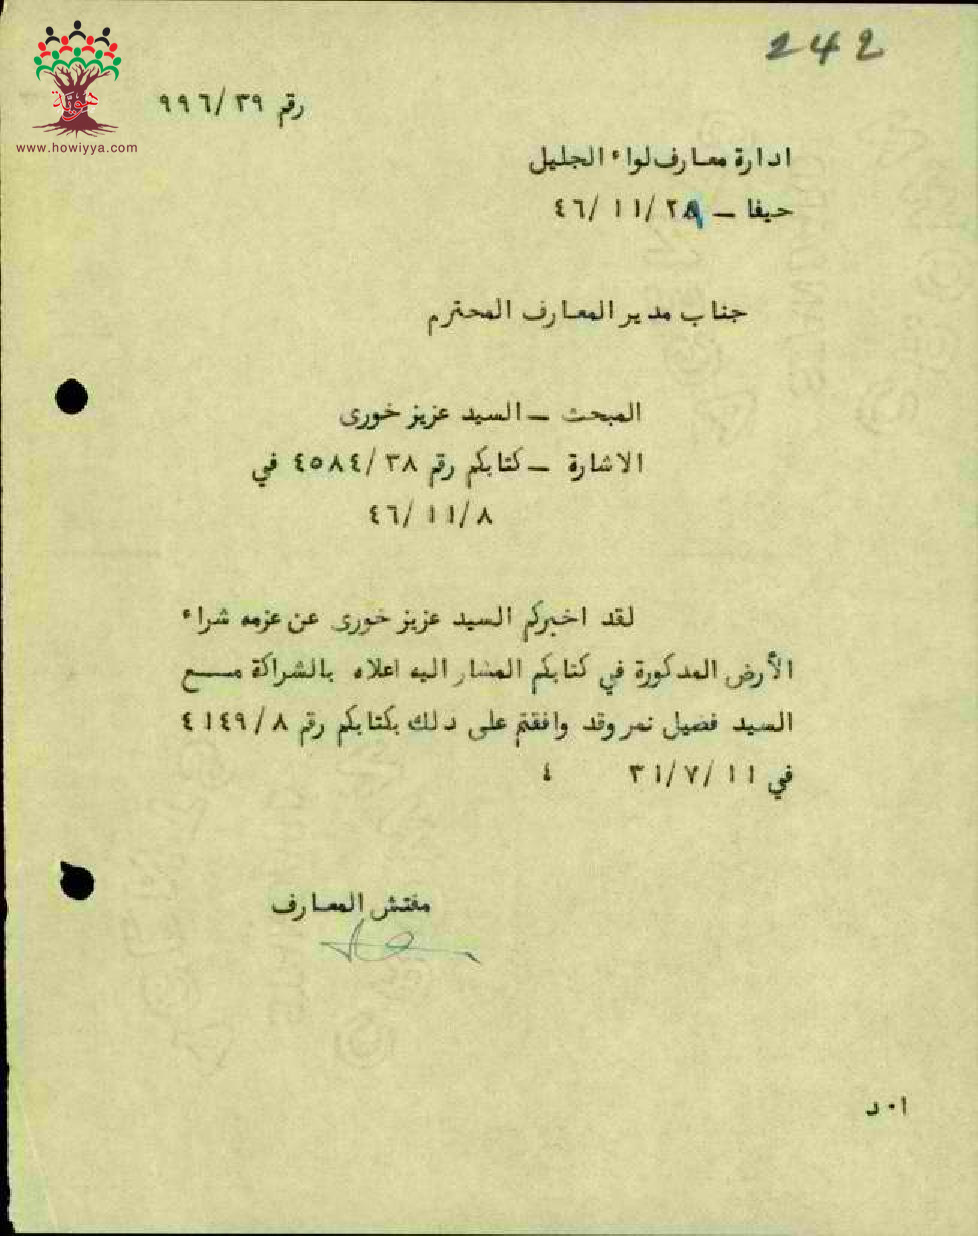 242
هوية
www.howiyya.com
رقم ٩٩٦/٣٩
ادارة معارف لواء الجليل
حيفا – ٤٦/١١/٢٩
جناب مدير المعارف المحترم
المبحث – السيد عزيز خورى
الاشارة – كتابكم رقم ٤٥٨٤/٣٨ في
٤٦/١١/٨
لقد اخبركم السيد عزيز خورى عن عزمه شراء
الأرض المدكورة في كتابكم المشار اليه اعلاه بالشراكة مع
السيد فضيل نمر وقد وافقتم على دلك بكتابكم رقم ٤١٤٩/٨
في ٣١/٧/١١ ٤
مفتش المعارف
ا٠د